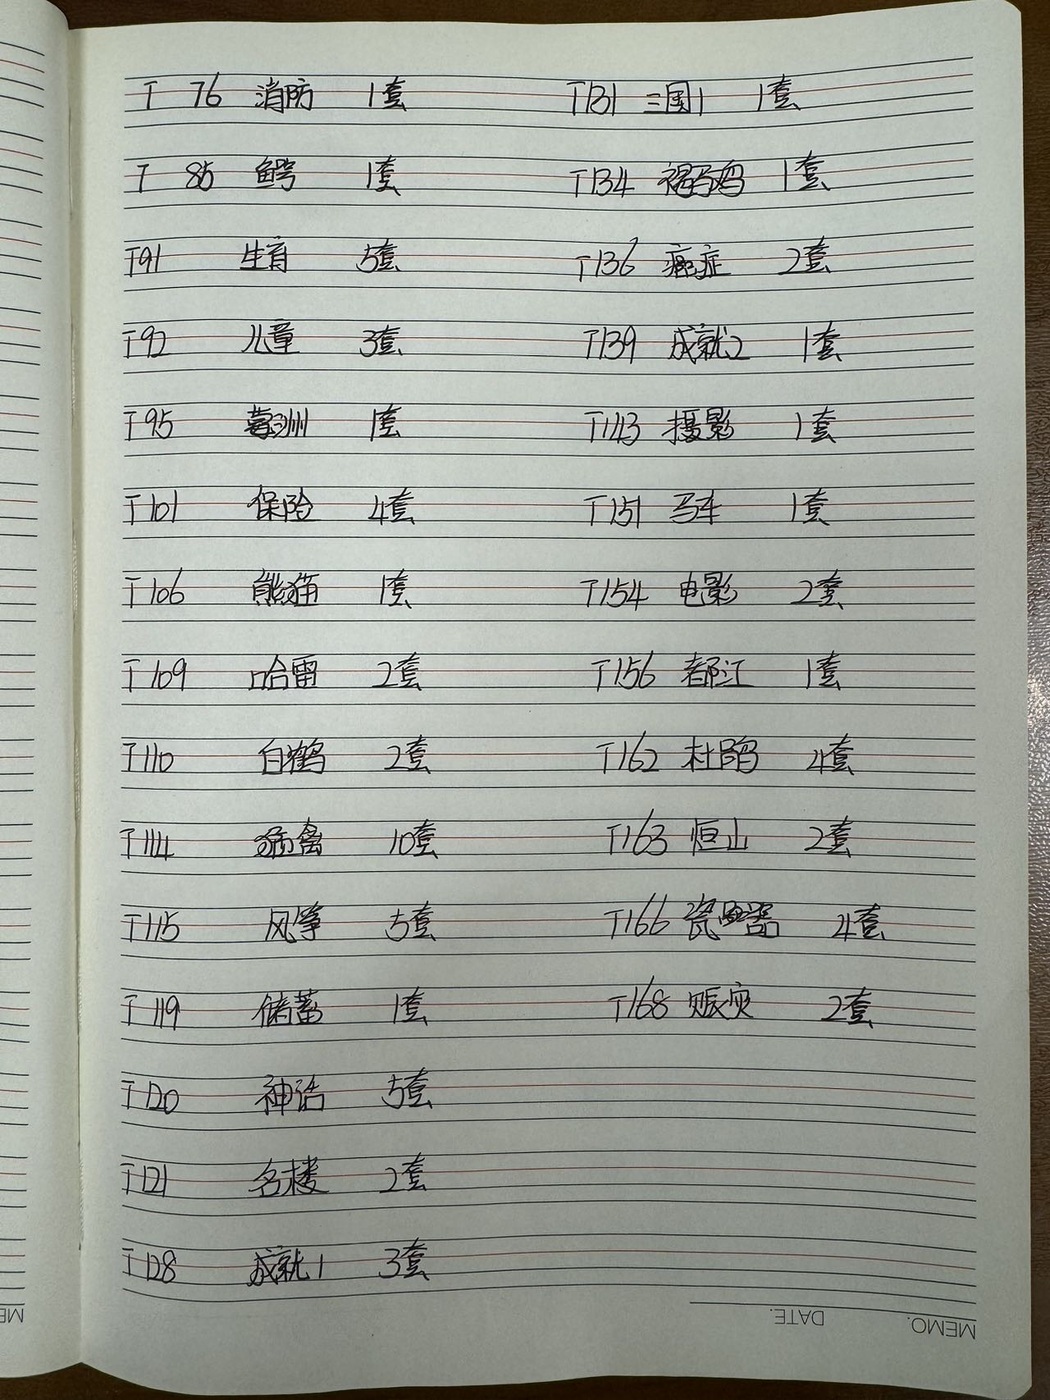 T 76 消防 1套
T 85 鳄 1套
T91 生育 5套
T92 儿童 3套
T95 葛洲 1套
T101 保险 4套
T106 熊猫 1套
T109 哈雷 2套
T110 白鹤 2套
T114 猛禽 10套
T115 风筝 5套
T119 储蓄 1套
T120 神话 5套
T121 名楼 2套
T128 成就1 3套
T131 三国1 1套
T134 褐马鸡 1套
T136 癌症 2套
T139 成就2 1套
T143 摄影 1套
T151 马车 1套
T154 电影 2套
T156 都江 1套
T162 杜鹃 4套
T163 恒山 2套
T166 瓷器 4套
T168 赈灾 2套
MEMO. DATE.